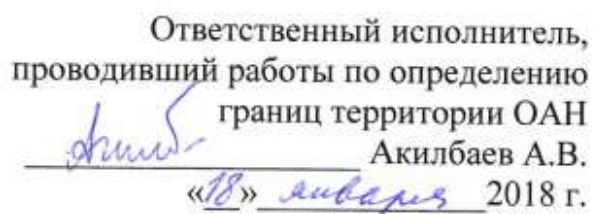 Ответственный исполнитель,
проводивший работы по определению
границ территории ОАН
Акилбаев А.В.
«18» января 2018 г.